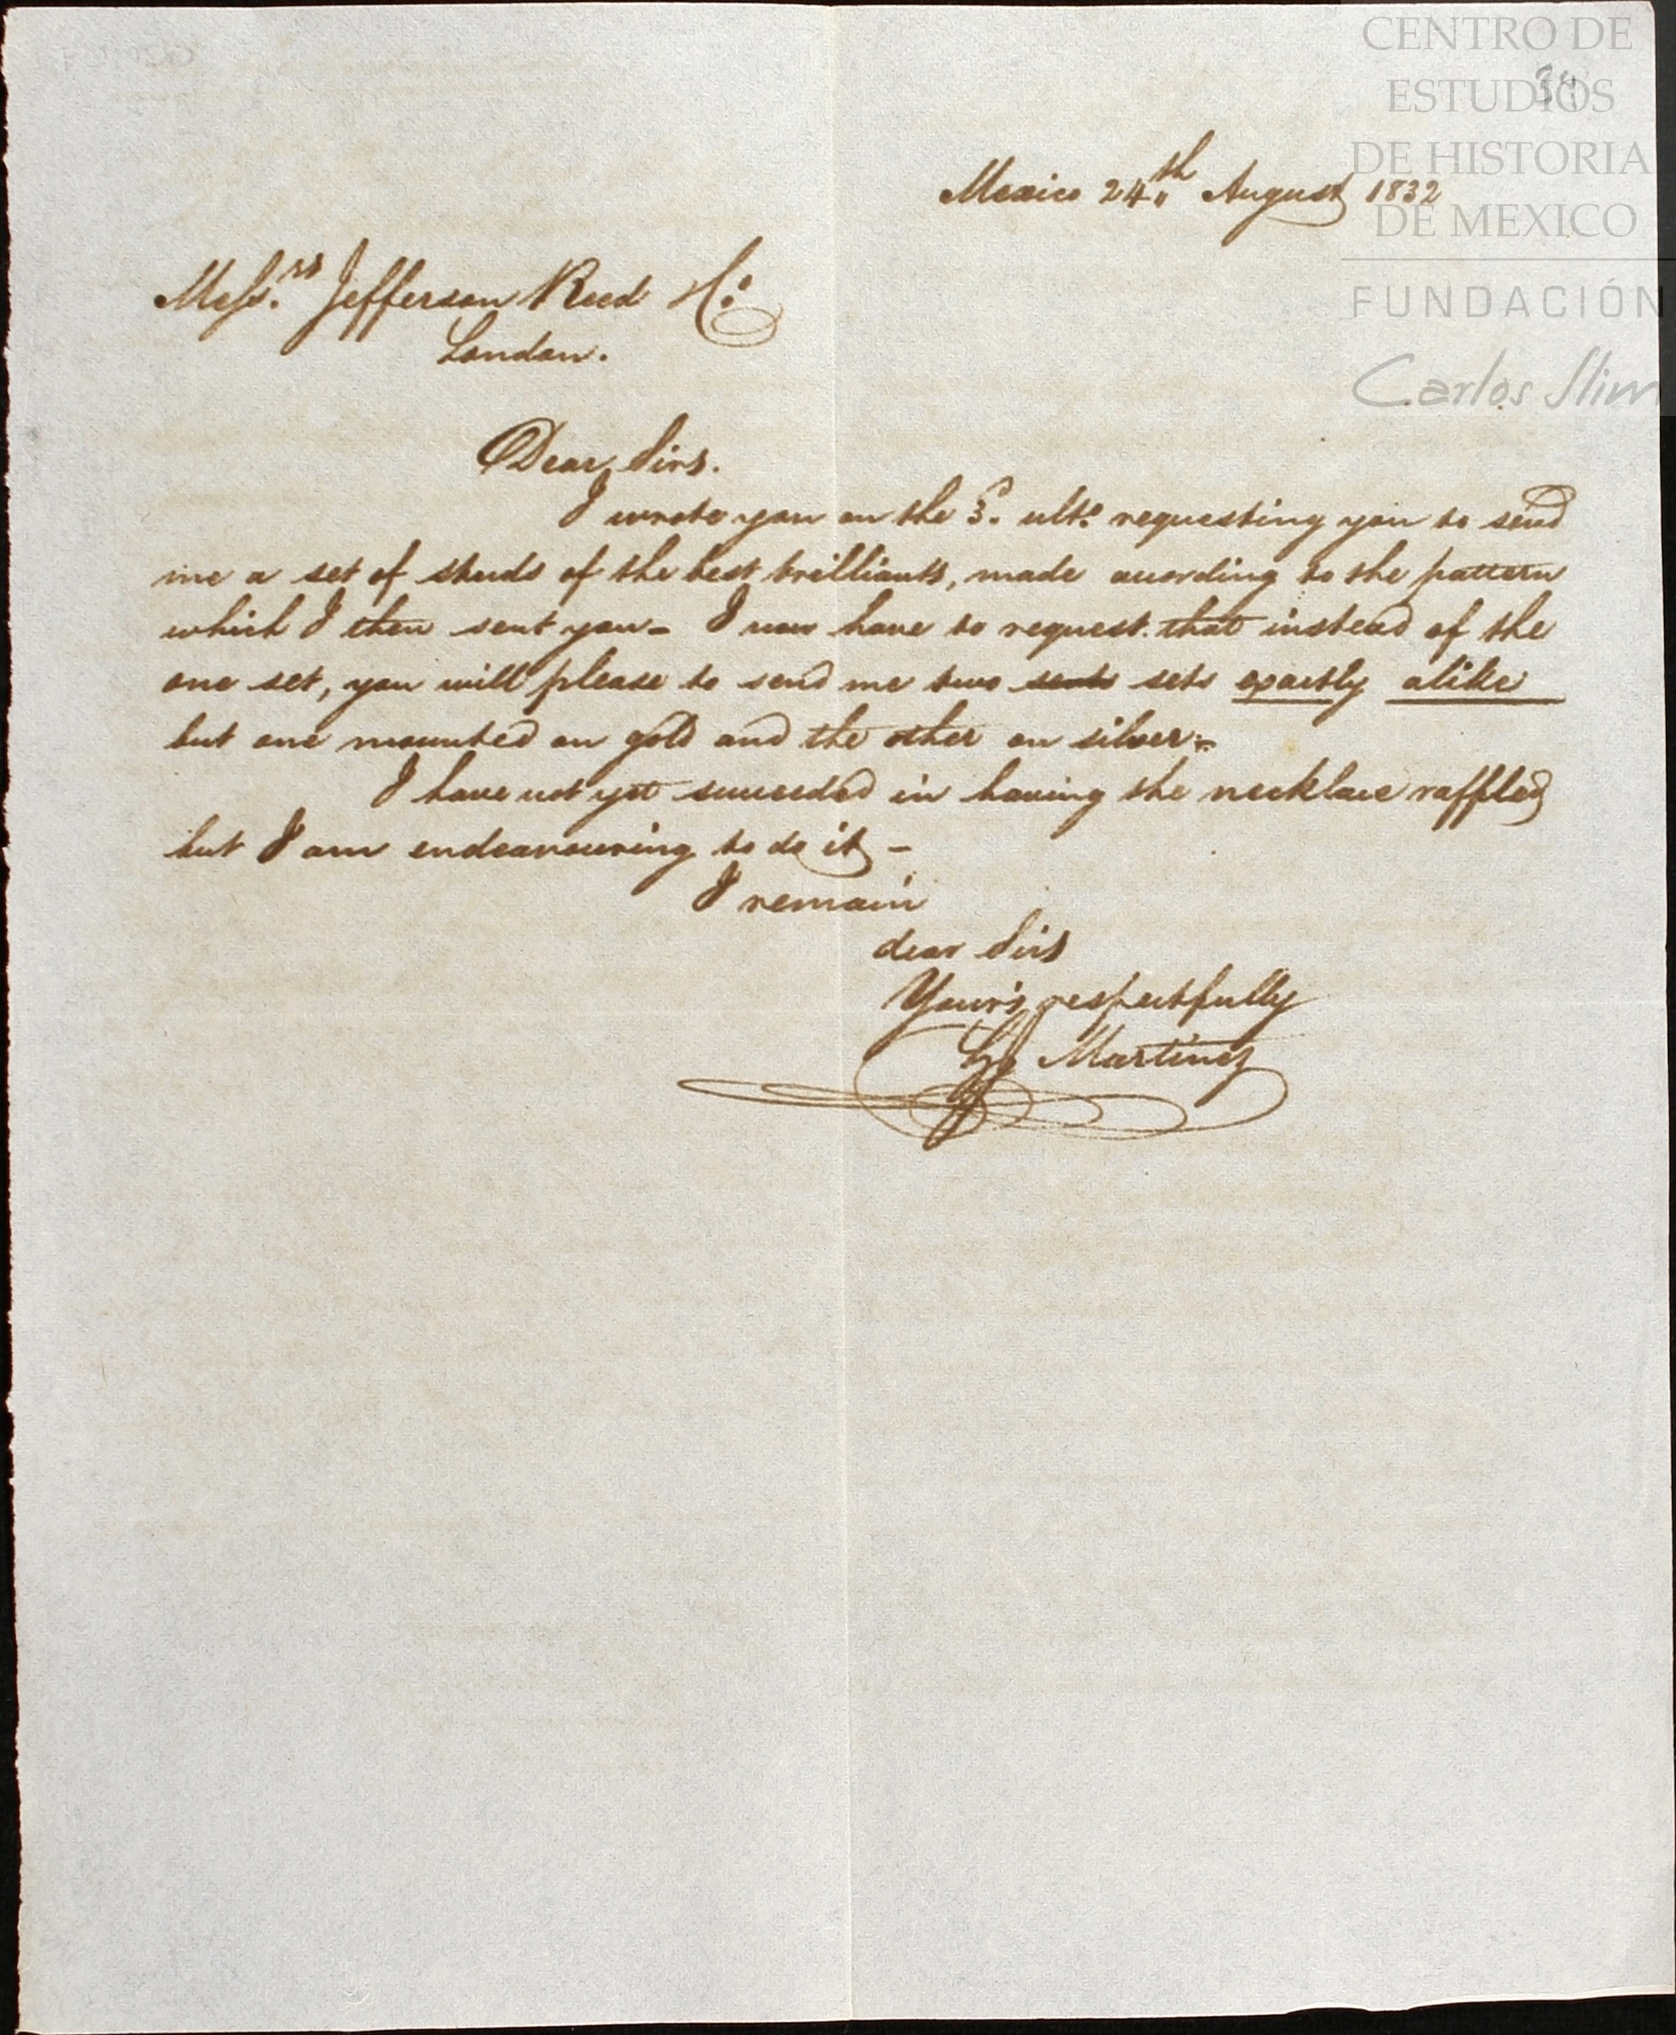 CENTRO DE
ESTUDIOS
DE HISTORIA
DE MEXICO
FUNDACIÓN
Carlos Slim
34
Mexico 24th August 1832
Messrs Jefferson Reed & Co
London.
Dear Sirs.
I wrote you on the 3d. ulto. requesting you to send
me a set of studs of the best brilliants, made according to the pattern
which I then sent you - I now have to request that instead of the
one set, you will please to send me two sets exactly alike
but one mounted on gold and the other on silver.-
I have not yet succeeded in having the necklace raffled
but I am endeavouring to do it -
I remain
dear Sirs
Your's respectfully
Martinez